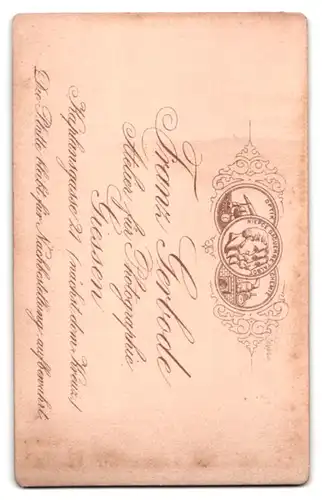 Franz Gerbode
Atelier für Photographie
Giessen
Kaplansgasse 21 (nächst dem Kreuz)
Die Platte bleibt für Nachbestellung aufbewahrt.